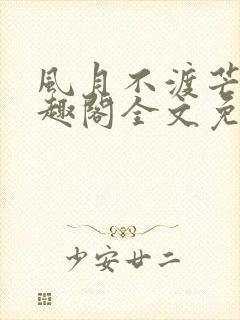 風月不渡芒
趣閣全文免
少安廿二